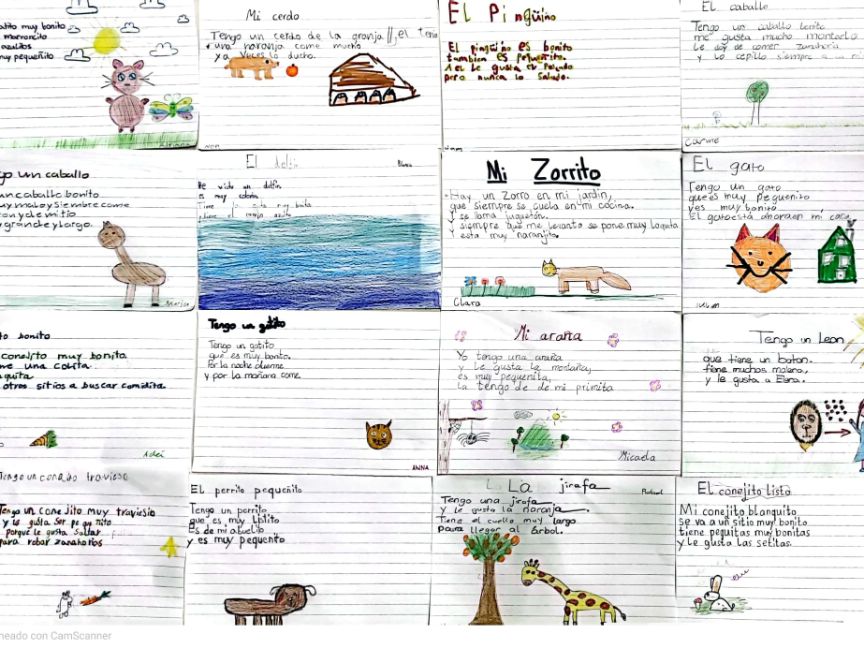 atito muy bonito
marroncito
azulitos
muy pequeñito
Adriana
Mi cerdo
Tengo un cerdo de la granja, él tenia
una naranja come mucho
y a veces la ducho.
El Pingüino
El pingüino es bonito
tambien es pequeñito.
A el le gusta el pescado
pero nunca lo salado.
El caballo
Tengo un caballo bonito
me gusta mucho montarlo
Le doy de comer zanahoria
y lo cepillo siempre
Carme
go un caballo
un caballo bonito
muy malo y siembre come
on y de mi tio
grande y largo.
El delfin
Blanca
He visto un delfin
es muy
Tiene
Mi Zorrito
Hay un Zorro en mi jardín,
que siempre se cuela en mi cocina.
Y se llama juguetón.
Y siempre que me levanto se pone muy loquito
Y esta muy naranjito.
Clara
El gato
Tengo un gato
que es muy pequeñito
yes muy bonito
El gato está ahora en mi casa
to bonito
conejito muy bonito
ne una colita
quita
otros sitios a buscar comidita.
Adei
Tengo un gatito
Tengo un gatito
que es muy bonito.
Por la noche duerme
y por la mañana come
ANNA
Mi araña
Yo tengo una araña
y le gusta la montaña,
es muy pequeñita,
la tengo de de mi primita
Micaela
Tengo un Leon
que tiene un boton.
tiene muchos
y le gusta a Elena.
Tengo un conejo travieso
Tengo un conejito muy traviesio
y le gusta ser pequeñito
porque le gusta saltar
para robar zanahorias
El perrito pequeñito
Tengo un perrito
que es muy
es de mi abuelito
y es muy pequeñito
La jirafa
Tengo una jirafa
y le gusta la naranja.
Tiene el cuello muy largo
para llegar al árbol.
El conejito listo
Mi conejito blanquito
se va a un sitio muy bonito
tiene peguitas muy bonitas
y le gusta las setitas.
neado con CamScanner